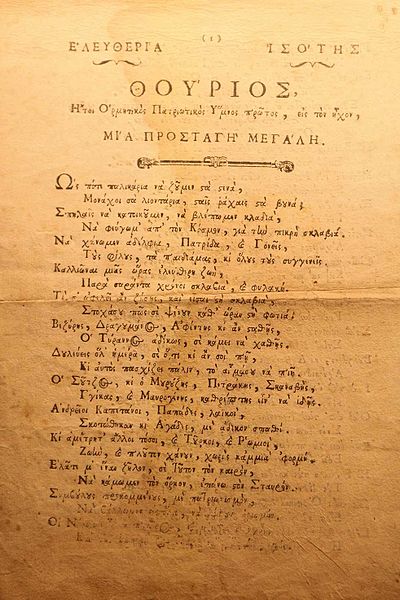 (1)
ΕΛΕΥΘΕΡΙΑ ΙΣΟΤΗΣ
ΘΟΥΡΙΟΣ,
Ἤτοι Ὁρμητικὸς Πατριωτικὸς Ὕμνος πρῶτος, εἰς τὸν ἦχον,
ΜΙΑ ΠΡΟΣΤΑΓΗ ΜΕΓΑΛΗ.
Ὡς πότε παλικάρια νὰ ζοῦμεν στὰ στενά,
Μονάχοι σὰ λιοντάρια, σταῖς ράχαις στὰ βουνά;
Σπηλαῖς νὰ κατοικοῦμεν, νὰ βλέπωμεν κλαδιά,
Νὰ φεύγωμ' ἀπ' τὸν Κόσμον, γιὰ τὴν πικρὴ σκλαβιά.
Νὰ χάνωμεν ἀδέλφια, Πατρίδα, καὶ Γονεῖς,
Τοὺς φίλους, τὰ παιδιάμας, κι ὅλους τοὺς συγγενεῖς.
Καλλίναι μίας ὥρας ἐλεύθερη ζωή,
Παρὰ σαράντα χρόνοι σκλαβιά, καὶ φυλακή.
Τί σ' ὠφελεῖ ἂν ζήσῃς, καὶ εἶσαι στὴ σκλαβιά,
Στοχάσου πῶς σὲ ψένουν καθ' ὥραν στὴ φωτιά;
Βιζύρης, Δραγουμάνος, Ἀφέντης κι ἂν σταθῇς,
Ὁ Τύραννος ἀδίκως, σὲ κάμει νὰ χαθῇς.
Δουλεύεις ὅλ' ἡμέρα, σὲ ὅ,τι κι ἄν σοι πῇ,
Κι αὐτὸς πασχίζει πάλιν, τὸ αἷμα σου νὰ πιῇ.
Ὁ Σούτζος, κι ὁ Μουρούζης, Πετράκης, Σκαναβής,
Γγίκας, καὶ Μαυρογένης, καθρέπτης εἶν' νὰ ἰδῇς.
Ἀνδρεῖοι Καπιτάνοι, Παπάδες, λαϊκοί,
Σκοτώθηκαν κι Ἀγάδες, μὲ ἄδικον σπαθί.
Κι ἀμέτρητ' ἄλλοι τόσοι, καὶ Τοῦρκοι, καὶ Ῥωμιοί,
Ζωὴν, καὶ πλοῦτον χάνουν, χωρὶς καμμιὰ 'φορμή.
Ἐλᾶτε μ' ἕναν ζῆλον, σὲ τοῦτον τὸν καιρόν,
Νὰ κάμωμεν τὸν ὅρκον, ἐπάνω στὸν Σταυρόν.
Συμβούλους προκομμένους, μὲ πατριωτισμόν,